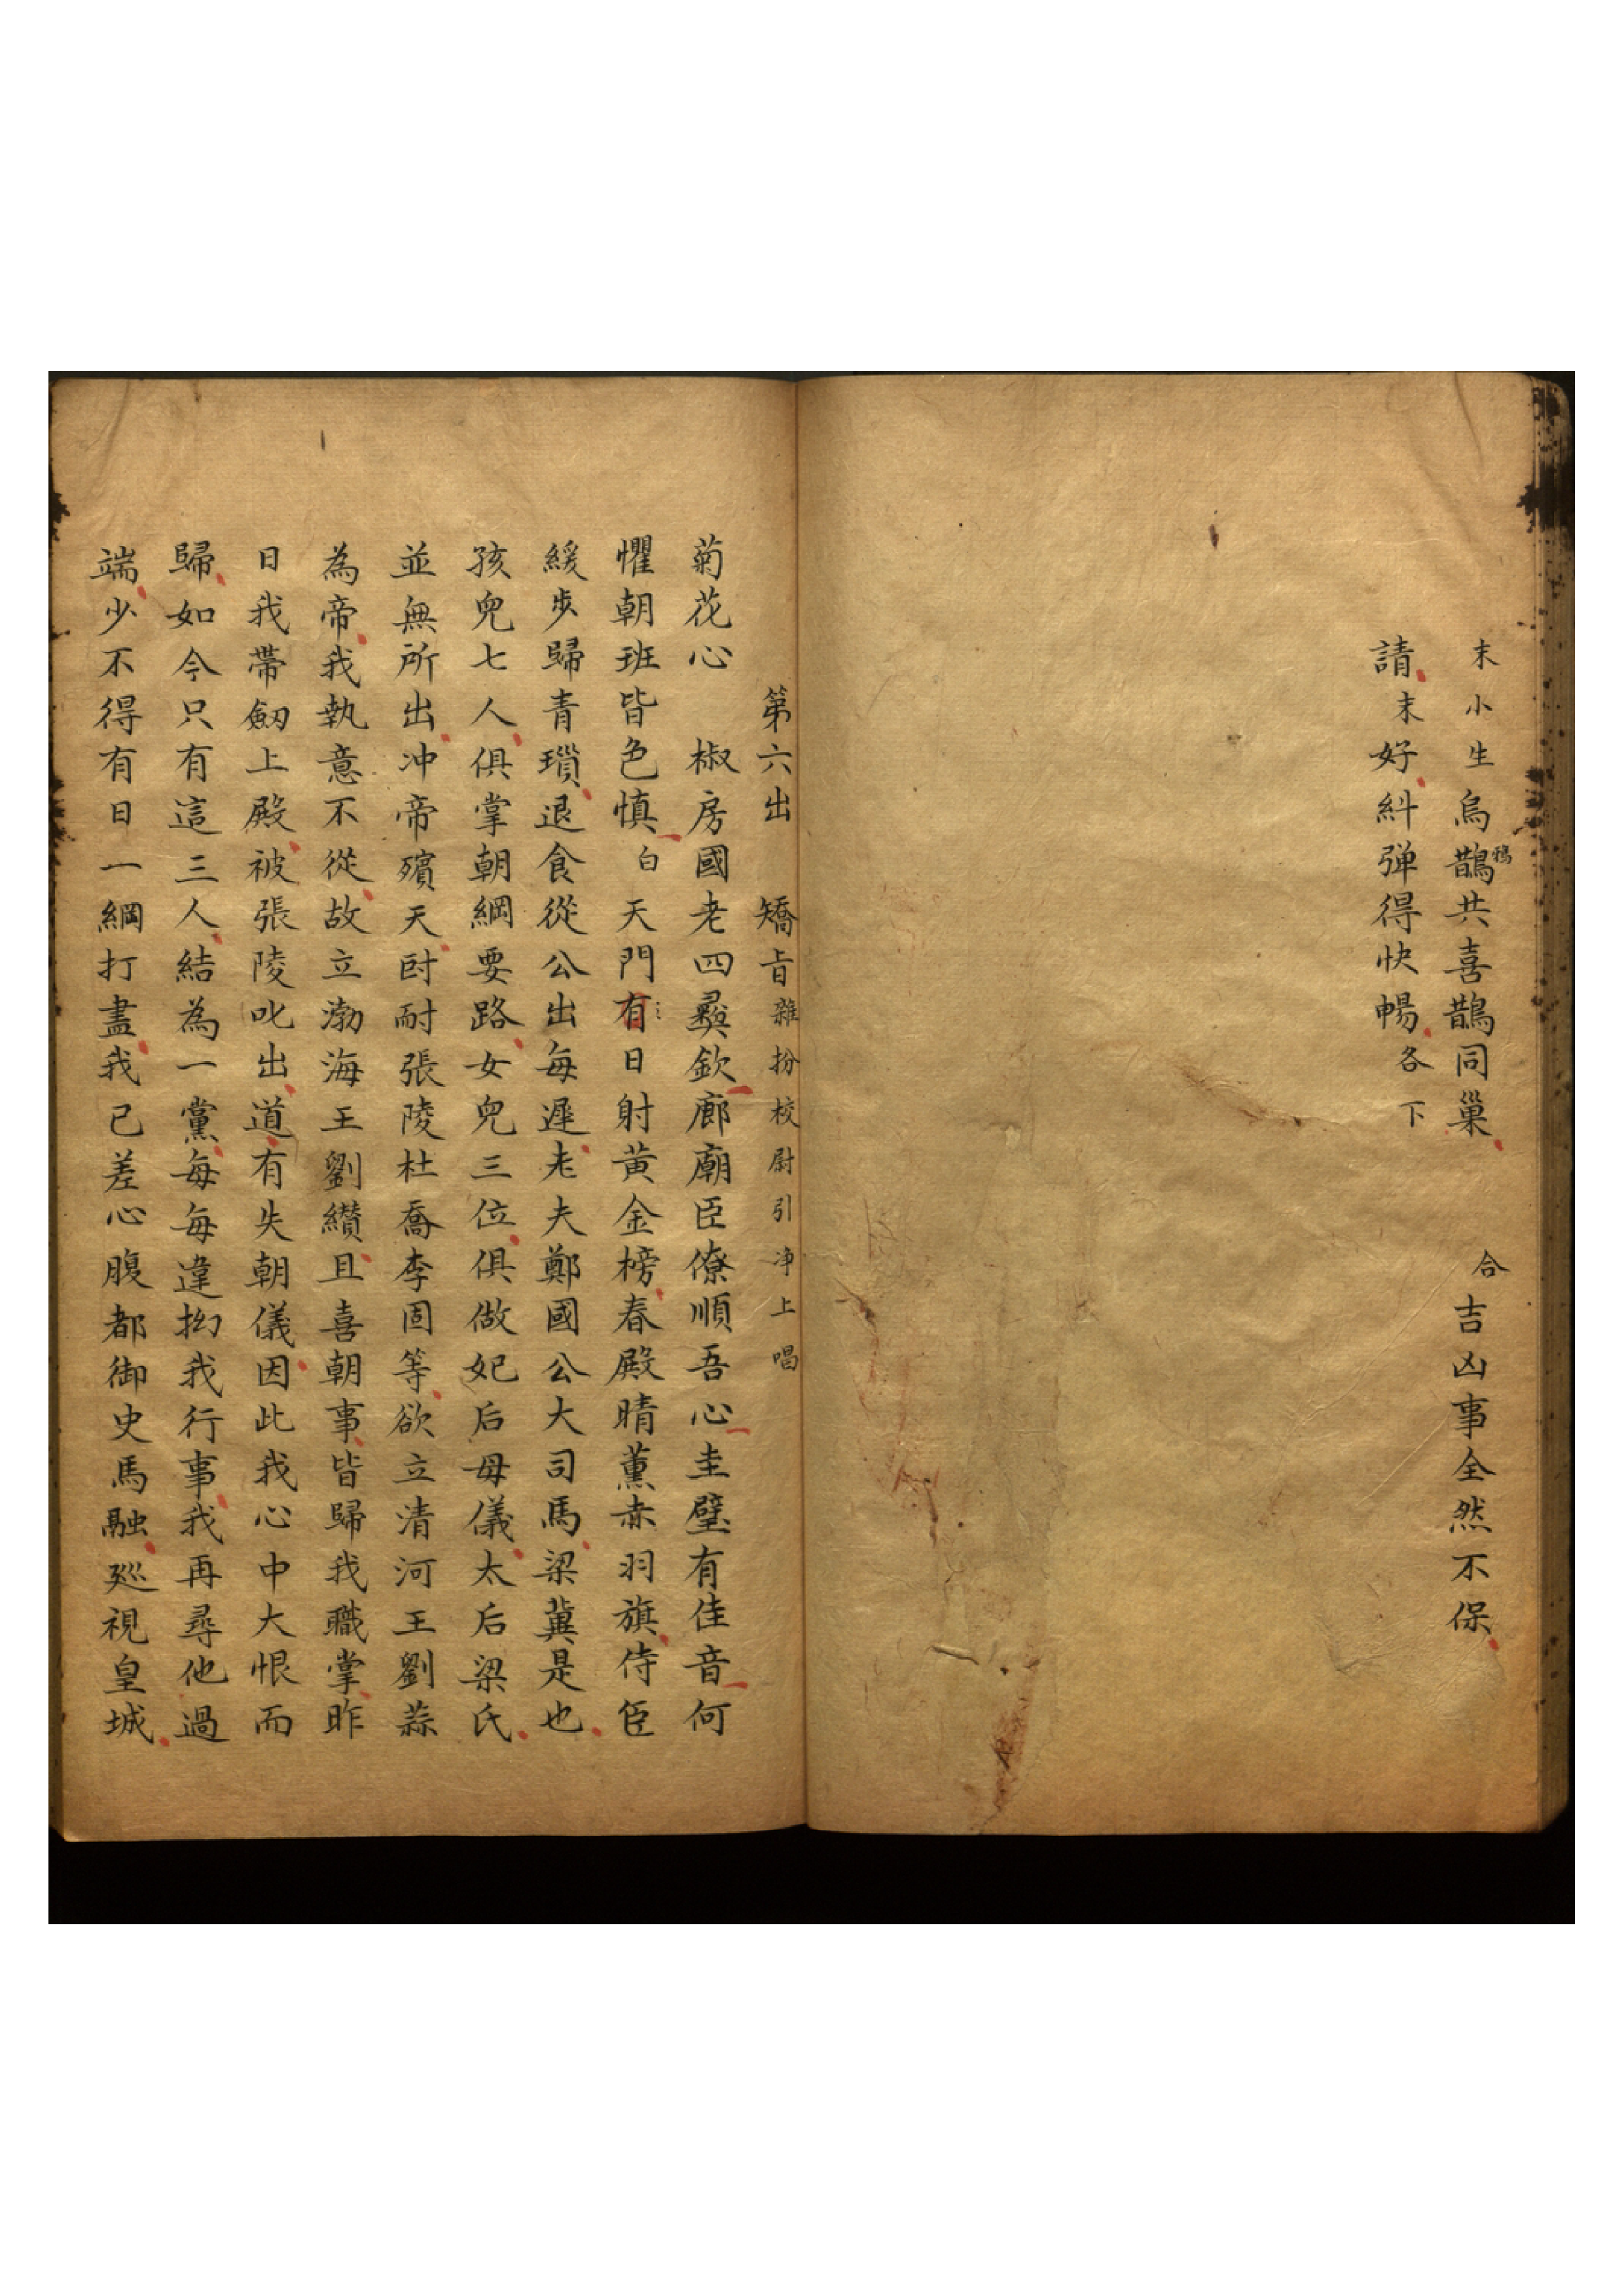 末小生烏鵲鴉共喜鵲同巢合吉凶事全然不保
請末好糾弹得快暢各下
第六出 矯旨雜扮校尉引净上唱
菊花心 椒房國老四彞欽廊廟臣僚順吾心圭璧有佳音何
懼朝班皆色慎白天門有日射黄金榜春殿晴薰赤羽旗侍臣
緩步歸青瑣退食從公出每遲老夫鄭國公大司馬梁冀是也
孩兒七人俱掌朝綱要路女兒三位俱做妃后母儀太后梁氏
並無所出冲帝殯天尀耐張陵杜喬李固等欲立清河王劉蒜
為帝我執意不從故立渤海王劉纉且喜朝事皆歸我職掌昨
日我帶劒上殿被張陵叱出道有失朝儀因此我心中大恨而
歸如今只有這三人結為一黨每每違拗我行事我再尋他過
端少不得有日一綱打盡我已差心腹都御史馬融廵視皇城